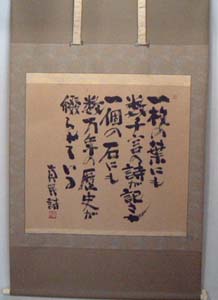 一枚の葉にも
数千言の詩が記され
一個の石にも
数万年の歴史が
綴られている
真民詩